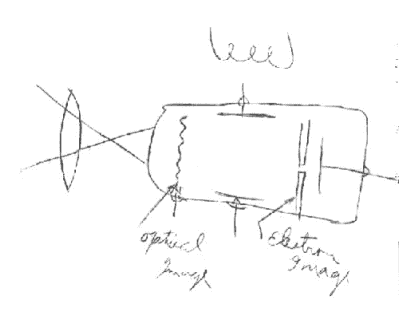 Optical
Image
Electron
Image